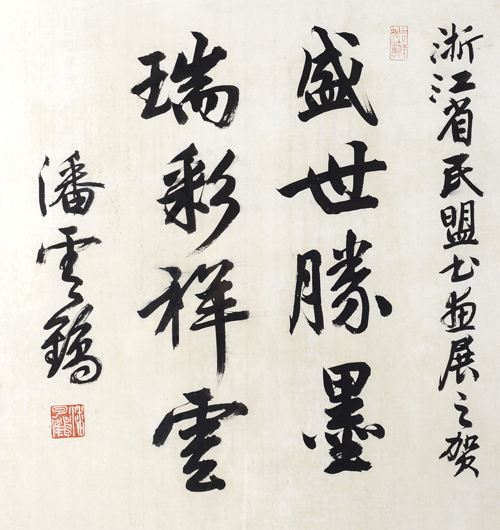 浙江省民盟书画展之贺
盛世勝墨
瑞彩祥雲
潘云鶴